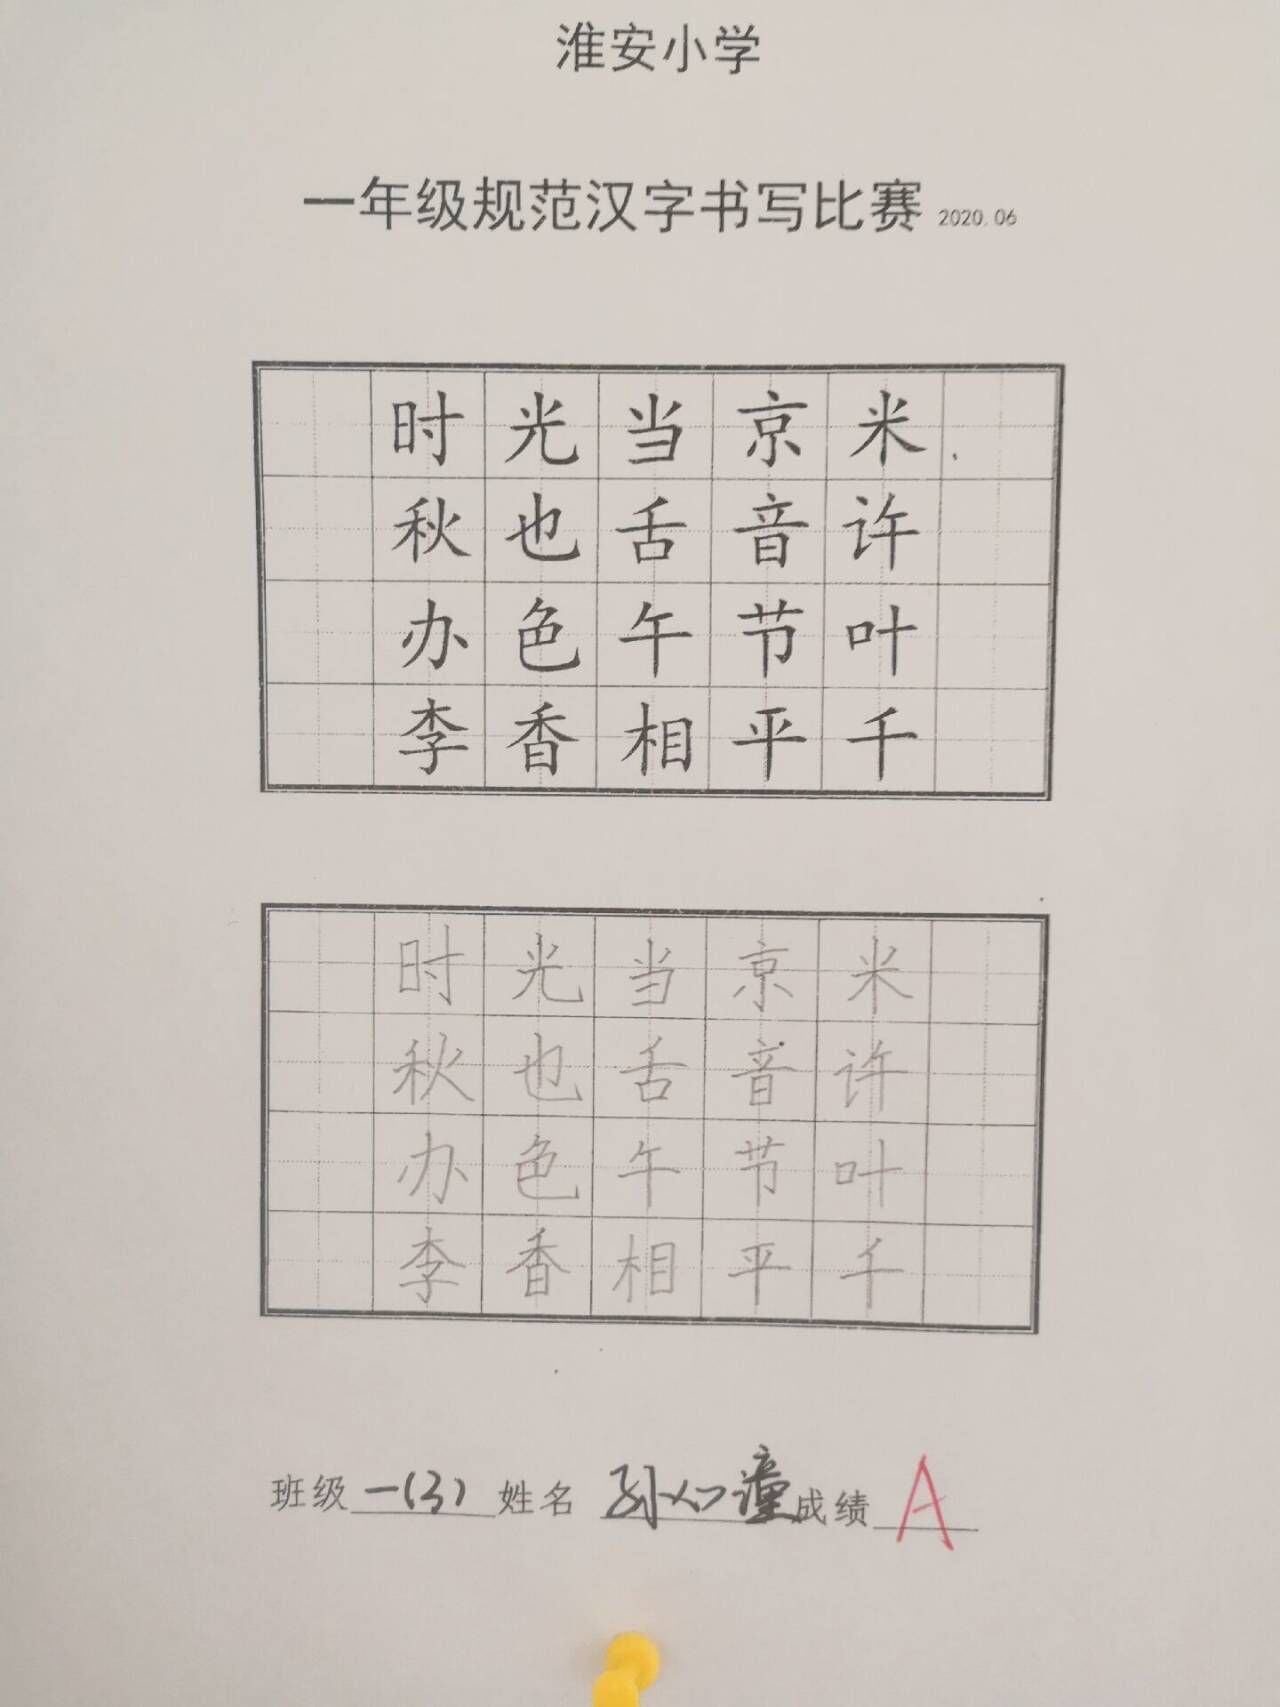 淮安小学
一年级规范汉字书写比赛 2020.06
时光当京米
秋也舌音许
办色午节叶
李香相平千
时光当京米
秋也舌音许
办色午节叶
李香相平千
班级 一(3) 姓名 孙 成绩 A